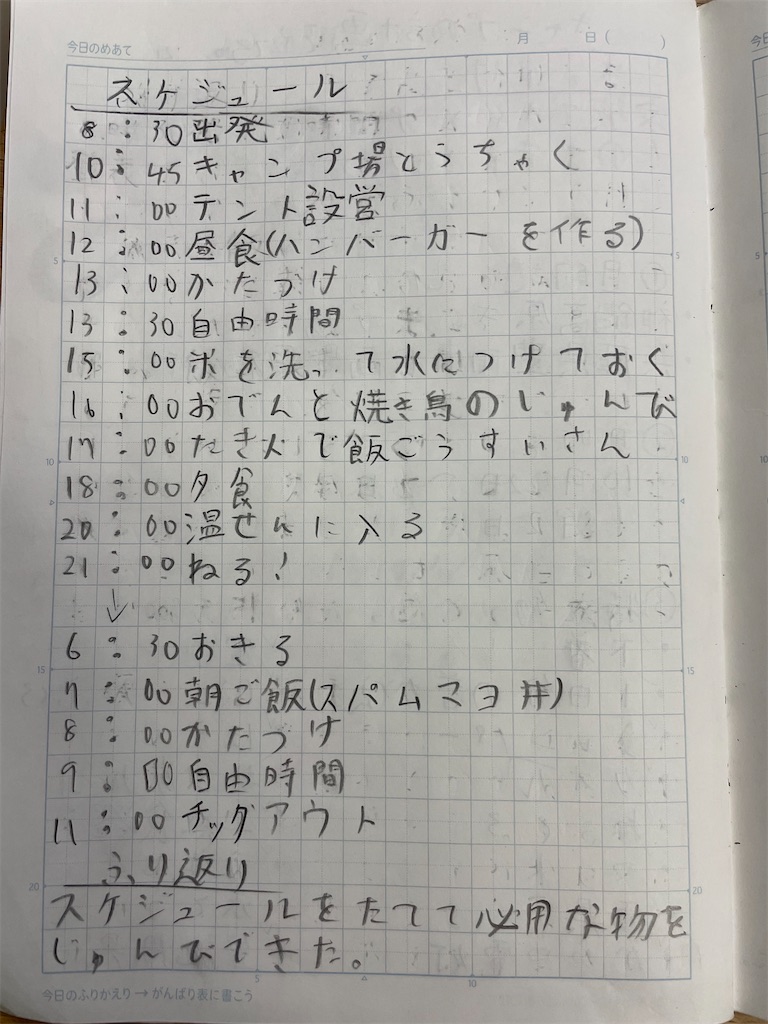 今日のめあて 月 日( )
スケジュール
8:30出発
10:45キャンプ場とうちゃく
11:00テント設営
12:00昼食(ハンバーガーを作る)
13:00かたづけ
13:30自由時間
15:00米を洗って水につけておく
16:00おでんと焼き鳥のじゅんび
17:00たき火で飯ごうすいさん
18:00夕食
20:00温せんに入る
21:00ねる!
↓
6:30おきる
7:00朝ご飯(スパムマヨ丼)
8:00かたづけ
9:00自由時間
11:00チッグアウト
ふり返り
スケジュールをたてて必用な物を
じゅんびできた。
今日のふりかえり→がんばり表に書こう